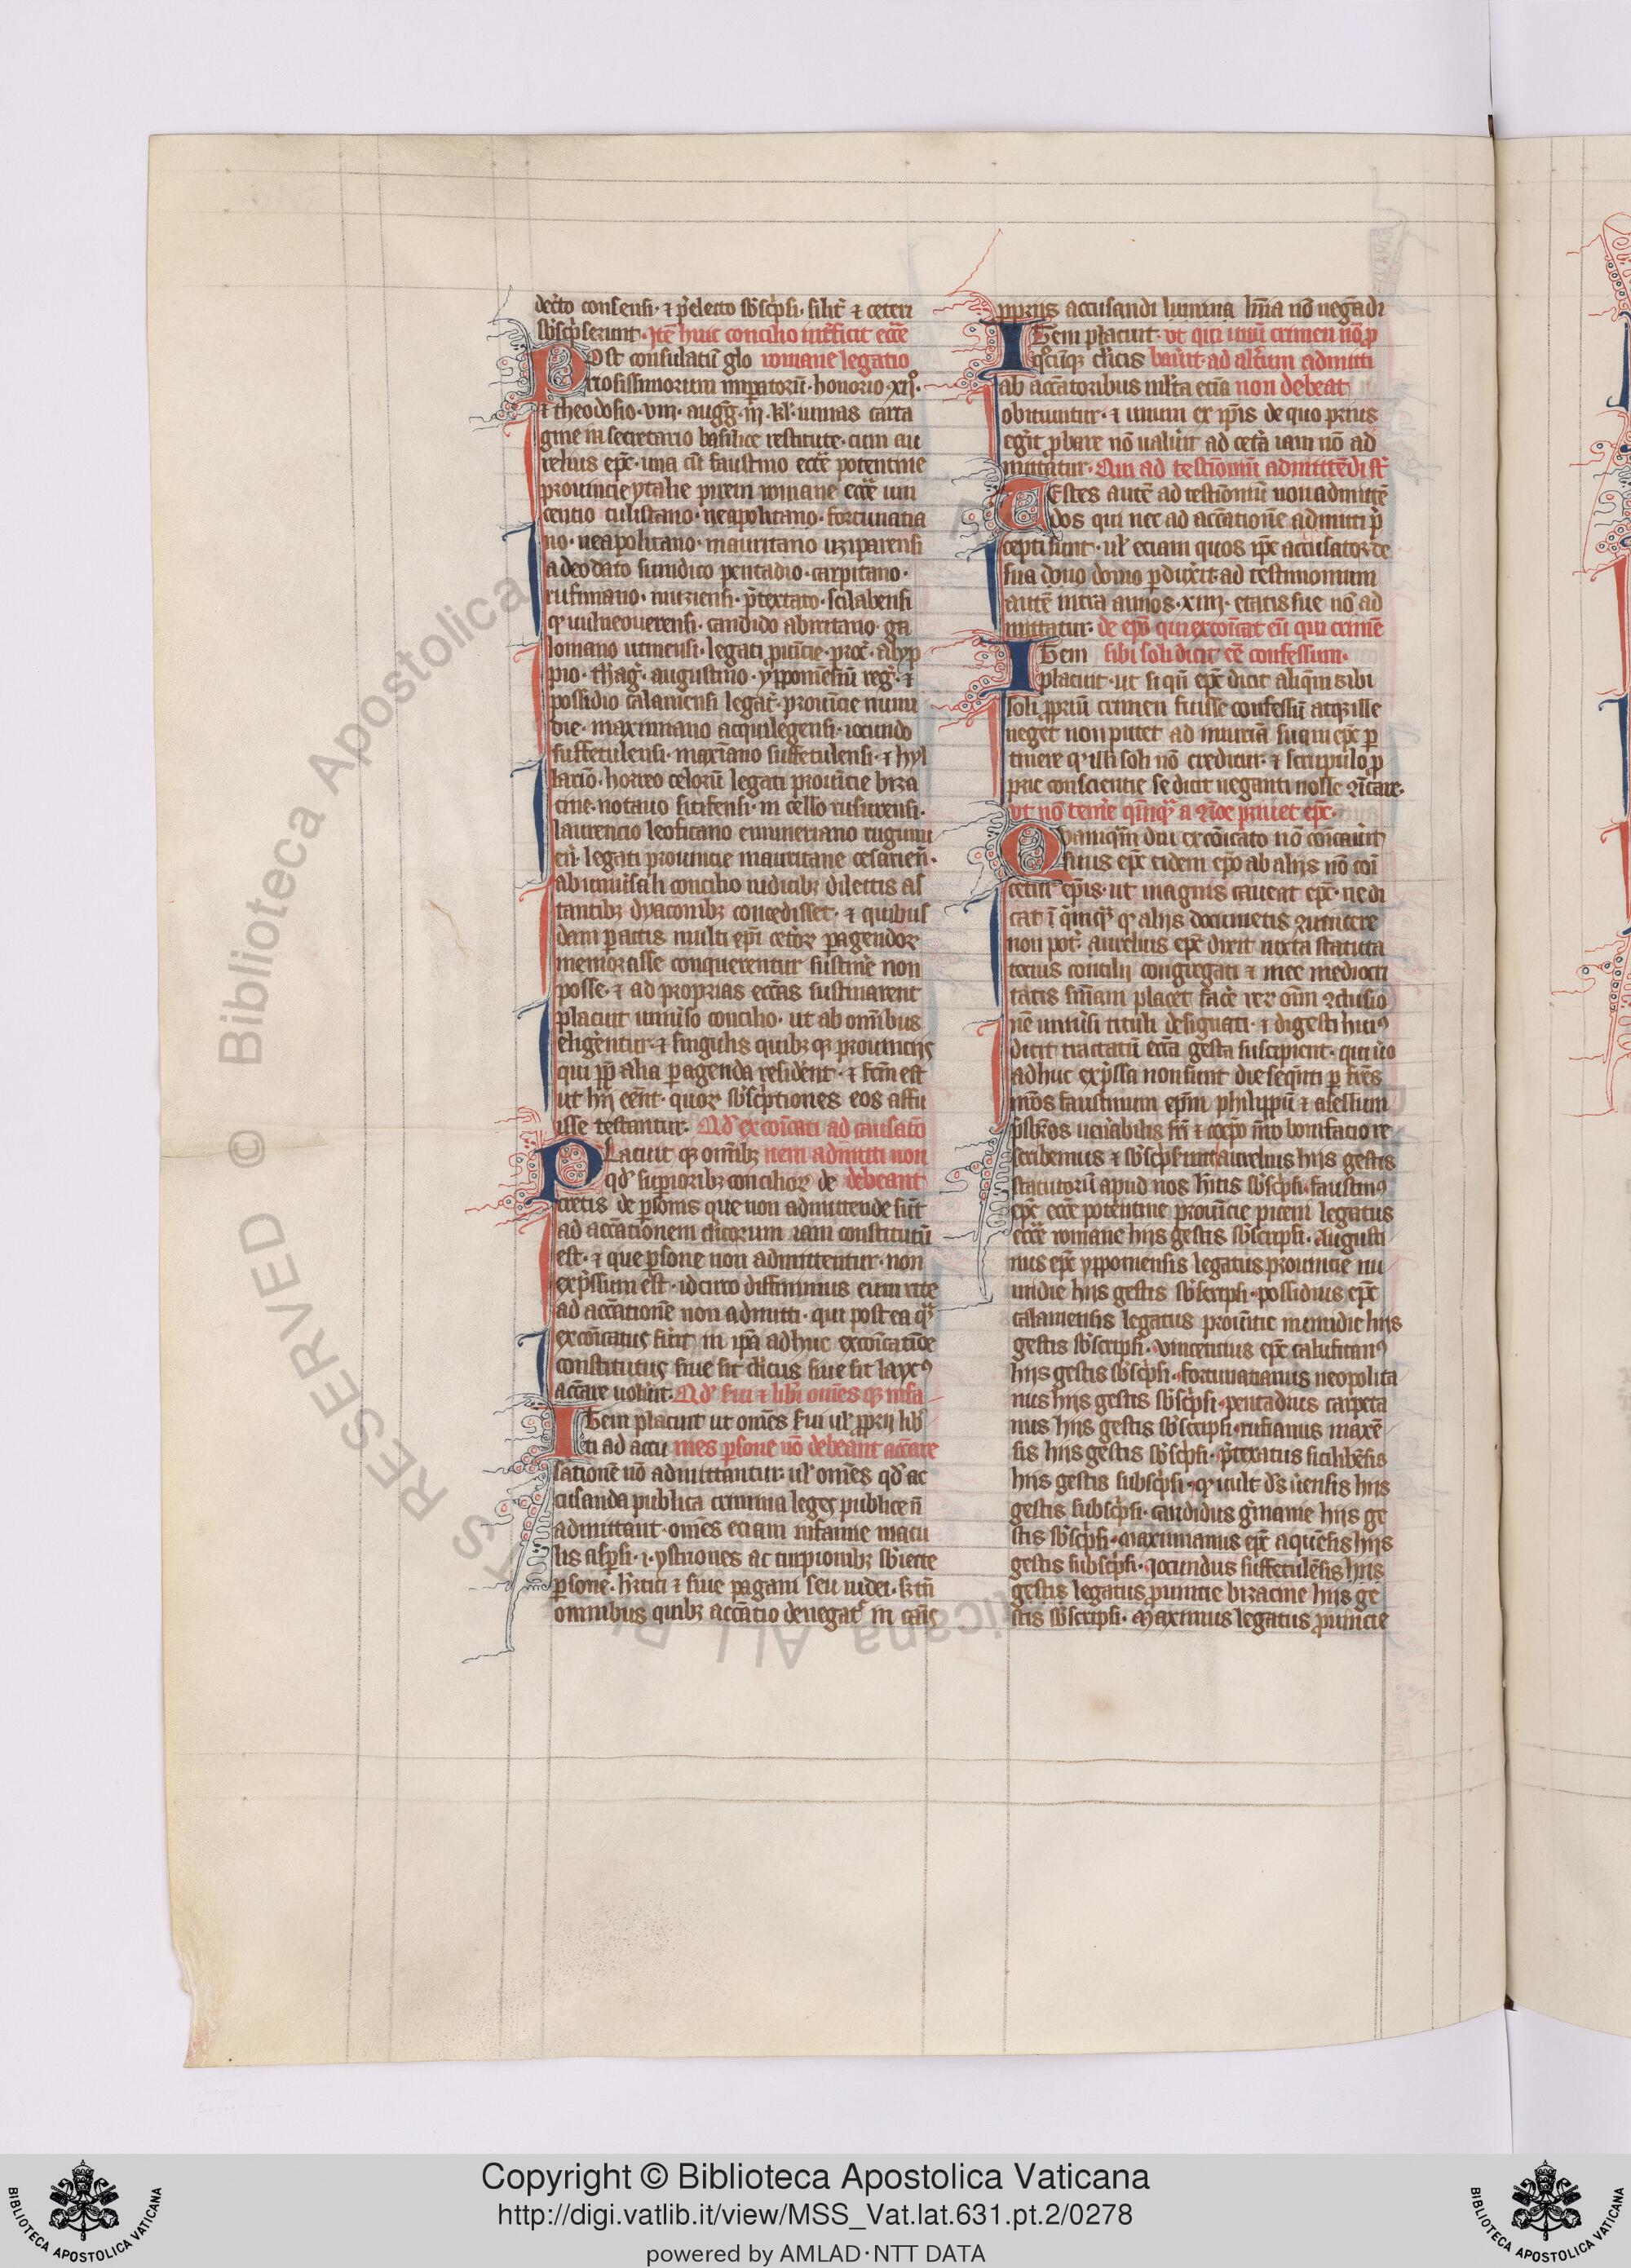 decˀto consensi · ⁊ p̄electo sb̄scͥpsi · silit̄ ⁊ ceteri
sb̄scͥpserunt · Itē huic concilio int̄ficit eccē
Post consulatū glo romane legatio
riosissimorum impatorū · honorio · xij°·
⁊ theodosio · viii · augg̃ · iij · kł · iunias carta
gine in secretario basilice restitute · cum au
relius ep̄c · una cū faustino eccē potentine
prouincie ytalie piceni romane eccē uin
centio culistano · neapolitano · fortunatia
no · neapolitano · mauritano uziparensi
adeodato simidico pentadio · carpitano ·
rufiniano · muziensi · p̄textato · scilabensi
candido abiritano · ga
lomano uticensi · legati ꝓuīcie · proc̄ · alyp
pio · thag̃ · augustino · ypponiēsiū reg̃ · ⁊
possidio calamensi legat̄ · prouīcie numi
die · maximiano acquilegensi · iocundo
suffetulensi · maxīano suffetulensi · ⁊ hyl
lario · horreo celorū legati prouīcie biza
cine · nouato sitifensi · in cello rusurensi ·
laurencio leositano eumneriano rugunu
eñ · legati prouincie mauritane cesarieñ ·
ab uniuˀsali concilio iudicibꝫ dilectis as
tantibꝫ dyaconibꝫ concedisset · ⁊ quibus
dam pactis multi ep̄i cetoꝝ pagendoꝝ
memorasse conquerentur sustinˀe non
posse · ⁊ ad proprias eccās festinarent
placuit uniuˀso concilio · ut ab om̄ibus
eligˀentur · ⁊ singulis quibꝫqꝫ prouinciis
qui ꝓpt̄ alia pagenda residˀent · ⁊ fcm̄ est
ut hij eēnt · quoꝝ sb̄scͥptiones eos affu
isse testantur · Qd̓ excōicati ad causatō
Placuit qꝫ om̄ibꝫ nem admitti non
qd̓ supioribꝫ conciliorꝝ de debeant
cretis de psonis que non admittende sūt
ad accātionem clˀicorum iam constitutū
est · ⁊ que psone non admittentur · non
exp̄ssum est · idcirco diffinimus eum rite
ad accātionē non admitti · qui post ea qͣꝫ
excōicatus fūit in ipā adhuc excōicatiōe
constitutus siue sit clˀicus siue sit layc⁹
accāre uolūit · Qd̓ sui ⁊ libˀi omēs qꝫ infa
Item placuit ut omēs sˀui uł ꝓprii libˀ
ti ad accu mes psone nō debeant accāre
sationē nō admittantur · uł omēs qd̓ ac
cusanda publica crimina leges publice ñ
admittant · omēs eciam infamie macu
lis aspsi · i · ystriones ac turpionibꝫ sb̄iecte
psone · hˀtici ⁊ siue pagani seu iudei · sꝫ tñ
omnibus quibꝫ accātio denegatͬ in cāis
ꝓpriis accusandi lumina licn̄ia nō negādi
Item placuit · vt qui unū crimen nō ꝓ
qͦcūqꝫ clˀicis bauˀit · ad alˀium admitti
ab accātoribus ml̄ta crīa non debeat
obiciuntur · ⁊ unum ex ip̄is de quo prius
egˀit ꝓbare nō ualūit ad cetˀa iam nō ad
mittatur · Qui ad testiōniū admittēdi st̄
Testes autē ad testiōniū non admittē
dos qui nec ad accātionē admitti p̄
cepti sunt · uł eciam quos ip̄e accusator de
sua domo pduxˀit · ad testimonium
autē intra annos · xiiii · etatis sue nō ad
mittatur · de ep̄o qui excōicat eū qui crimē
Item sibi soli dicit eē confessum ·
placuit · ut si qn̄ ep̄c dicit aliqͣm sibi
soli ꝓpriū crimen fuisse confessū atqꝫ ille
neget non putet ad iniuriā suam ep̄c p
tinere qͥ illi soli nō creditur · ⁊ scrupulo ꝓ
prie conscientie se dicit neganti nolle ꝯīcare ·
vt nō temˀe qm̄qͣꝫ a ꝯīoe priuet ep̄c ·
Quamqͣm diu excōicato nō cōicauˀit
suus ep̄c eidem ep̄o ab aliis nō cōi
cetur ep̄is · ut magis caueat ep̄c · ne di
cat ī qͣmqͣꝫ qͥ aliis documētis ꝯuincere
non potˀ · aurelius ep̄c dixit iuxta statuta
tocius concilii congregati ⁊ mee mediocri
tatis sn̄iam placet facˀe rerꝝ om̄ ꝯclusio
nē uniuˀsi tituli designati · ⁊ digesti hui⁹
dicit tractatū eccā gesta suscipient · qui uˀo
adhuc exp̄ssa non sunt die seqn̄ti p frēs
nr̄os faustinum ep̄m philippū ⁊ asellum
p̄sbr̄os uen̄abilis fri ⁊ coep̄o nr̄o bonifacio re
scribemus ⁊ sb̄scͥpserunt aurelius hijs gestis
statutorū apud nos hīitis sb̄scͥpsi · faustin⁹
ep̄c eccē potentine prouīcie piceni legatus
eccē romane hijs gestis sb̄scripsi · Augusti
nus ep̄c ypponiensis legatus prouincie nu
midie hijs gestis sb̄scripsi · possidius ep̄c
calamensis legatus prouīcie numidie hijs
gestis sb̄scripsi · vincentius ep̄c calusitan⁹
hijs gestis sb̄scͥpsi · fortunatianus neopolita
nus hijs gestis sb̄scͥpsi · pentadius carpeta
nus hijs gestis sb̄scripsi · rufianus maxē
sis hijs gestis sb̄scͥpsi · p̄textatus sicilibēsis
hijs gestis subscͥpsi · qͦ uult dˀs uˀensis hijs
gestis subscͥpsi · candidus gˀmanie hijs ge
stis sb̄scͥpsi · Maximianus ep̄c aquēsis hijs
gestis subscͥpsi · Jocundus suffetulēsis hijs
gestis legatus ꝓuincie bizacine hijs ge
stis sb̄scripsi · Maximus legatus ꝓuincie
Copyright © Biblioteca Apostolica Vaticana
http://digi.vatlib.it/view/MSS_Vat.lat.631.pt.2/0278
powered by AMLAD·NTT DATA
BIBLIOTECA APOSTOLICA VATICANA
BIBLIOTECA APOSTOLICA VATICANA